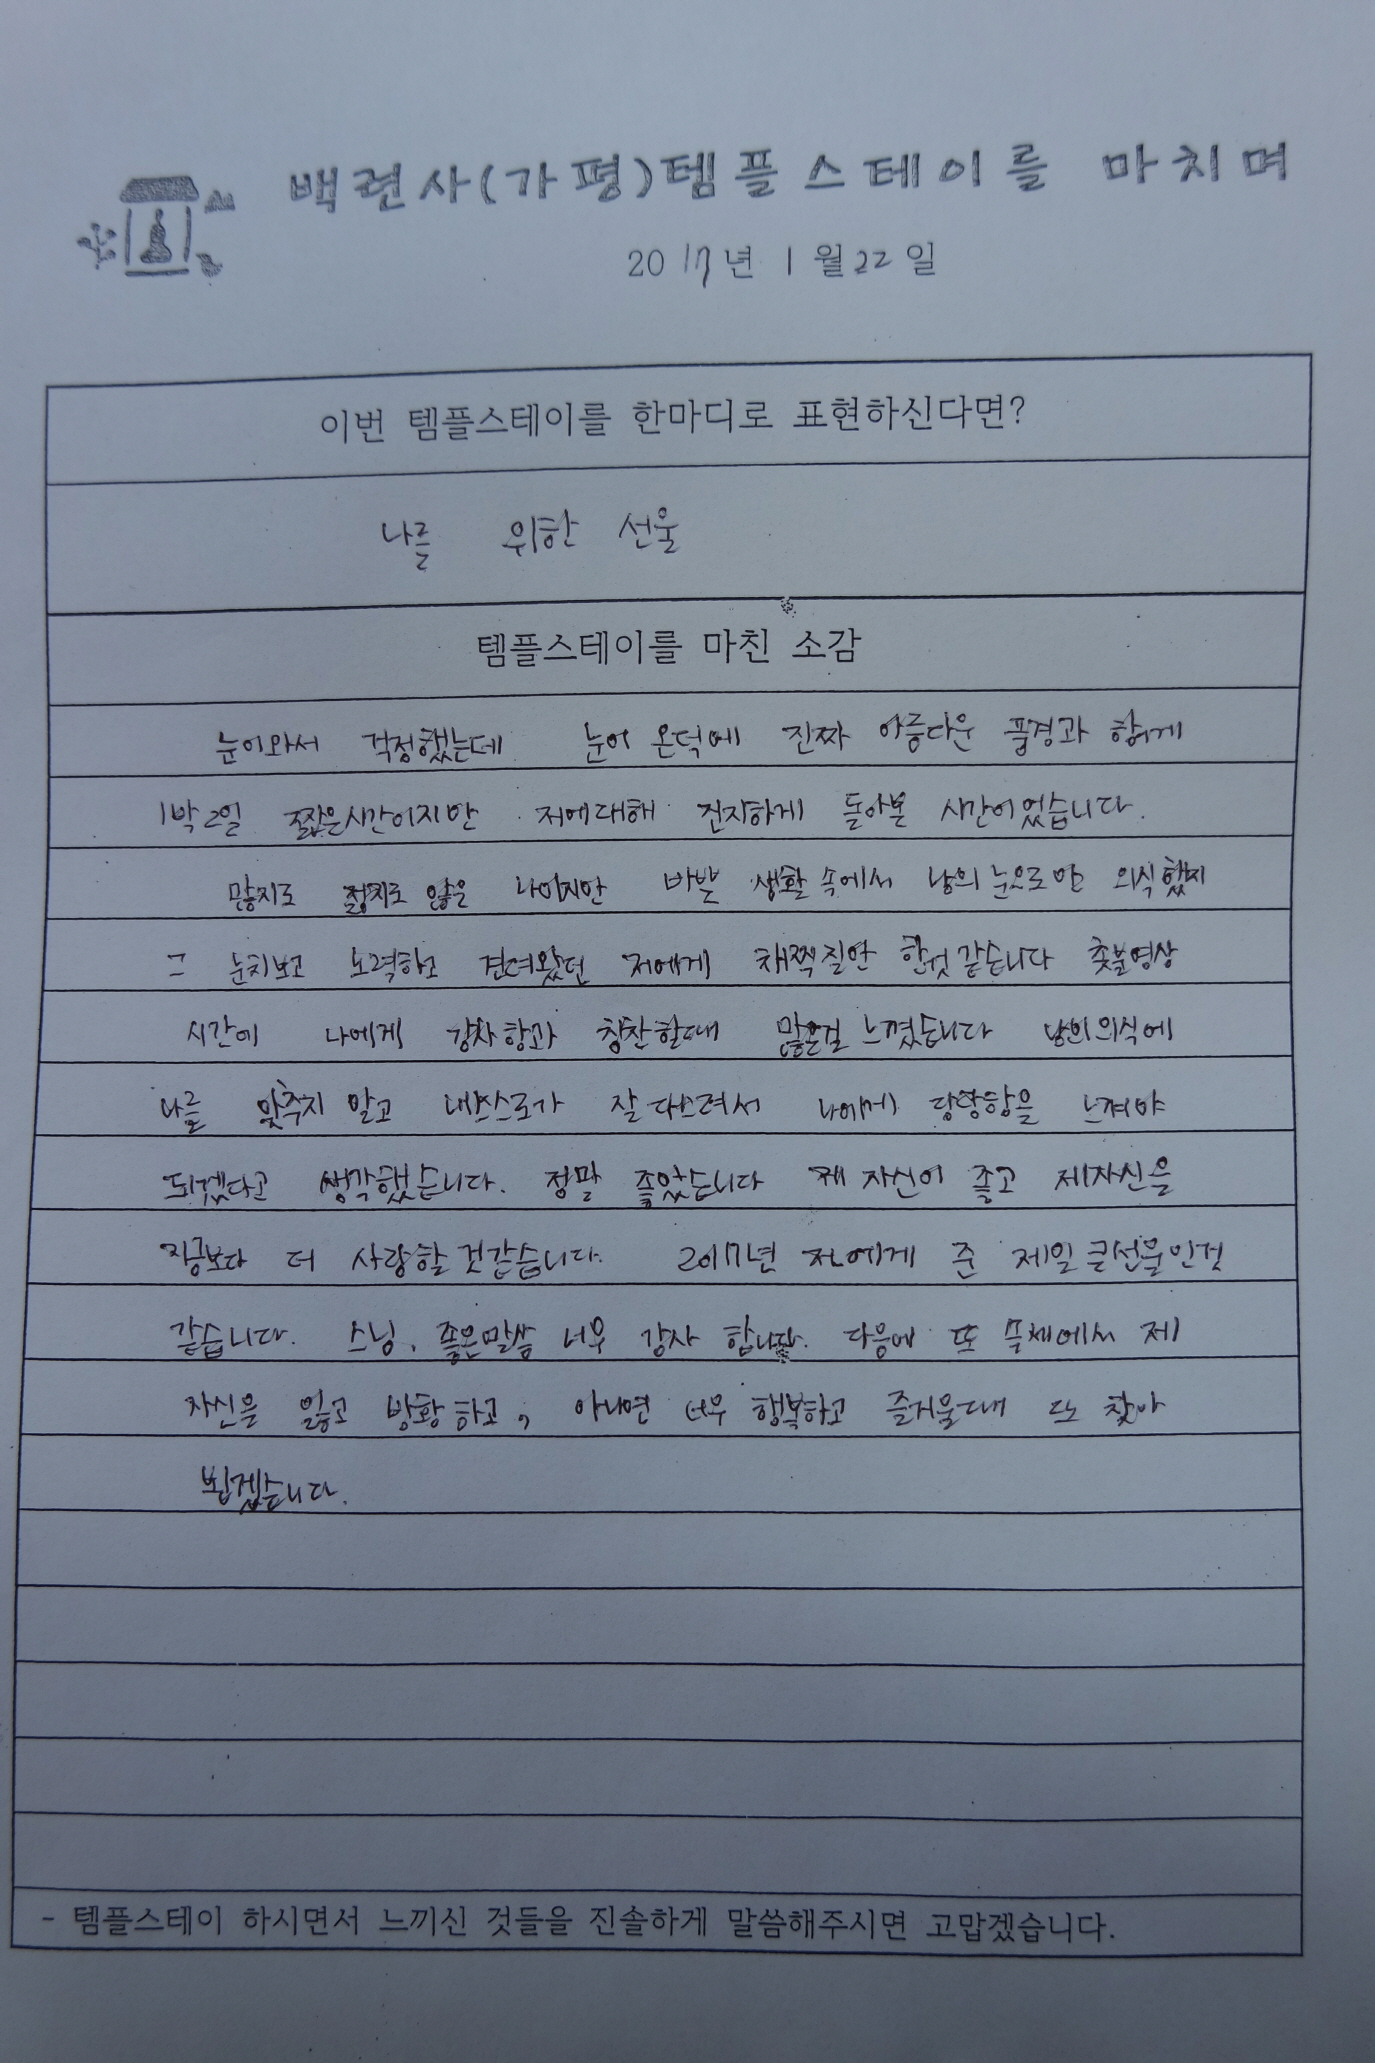 백련사(가평)템플스테이를 마치며
2017년 1월 22일
이번 템플스테이를 한마디로 표현하신다면?
나를 위한 선물
템플스테이를 마친 소감
눈이와서 걱정했는데 눈이 온덕에 진짜 아름다운 풍경과 함께
1박2일 짧은시간이지만 저에대해 진지하게 돌아본 시간이었습니다.
많지도 젊지도 않은 나이지만 바쁜 생활 속에서 남의 눈으로만 의식했지
그 눈치보고 노력하고 견뎌왔던 저에게 채찍질만 한것 같습니다 촛불명상
시간에 나에게 감사함과 칭찬할때 많은걸 느꼈습니다 남의의식에
나를 맞추지 말고 내스스로가 잘 다스려서 나에게 당당함을 느껴야
되겠다고 생각했습니다. 정말 좋았습니다 제 자신이 좋고 제자신을
지금보다 더 사랑할 것같습니다. 2017년 저에게 준 제일 큰선물인것
같습니다. 스님, 좋은말씀 너무 감사 합니다. 다음에 또 제
자신을 잃고 방황하고, 아니면 너무 행복하고 즐거울때 또 찾아
뵙겠습니다.
- 템플스테이 하시면서 느끼신 것들을 진솔하게 말씀해주시면 고맙겠습니다.